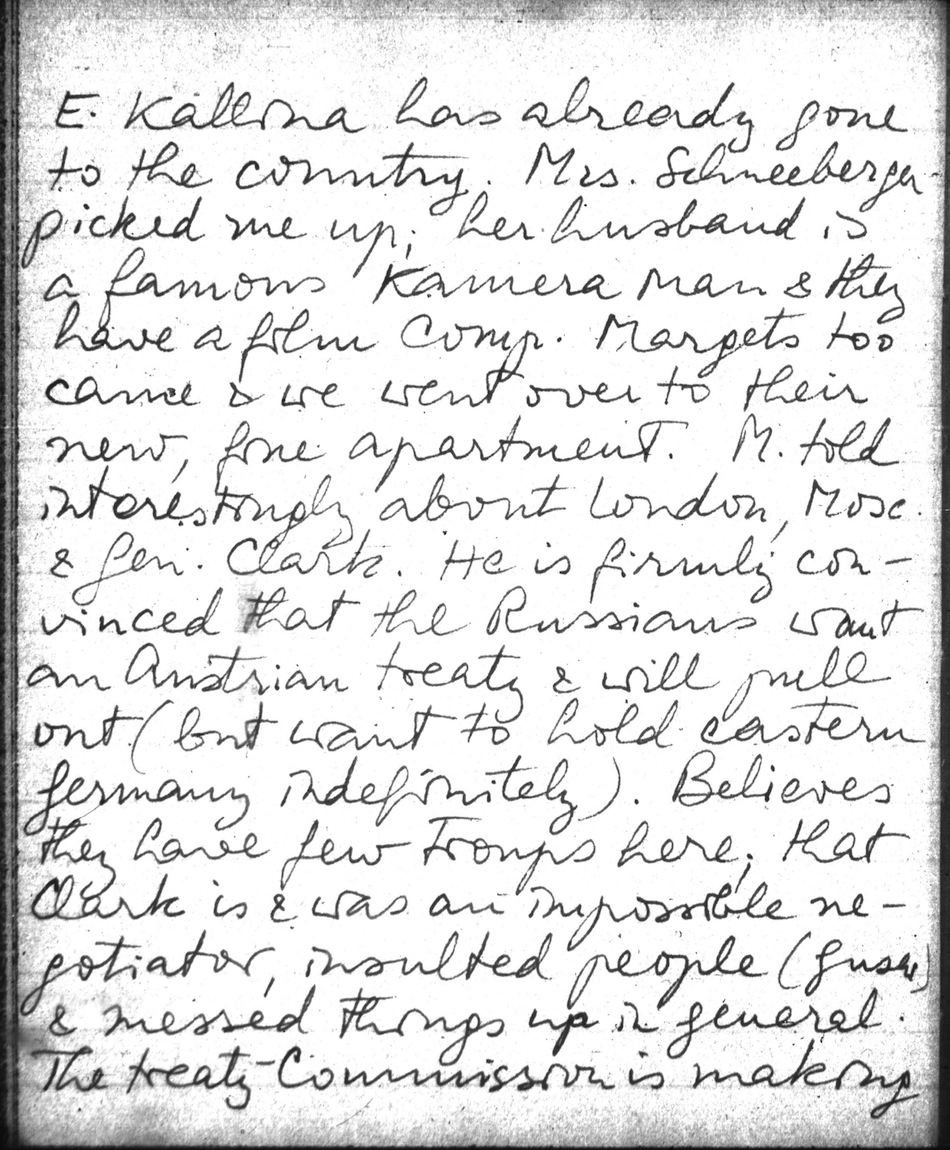 E. Kallina has already gone
to the country. Mrs. Schneeberger
picked me up; her husband is
a famous Kamera man & they
have a film Comp. Margets too
came & we went over to their
new, fine apartment. M. told
interestingly about London, Mosc.
& Gen. Clark. He is firmly con-
vinced that the Russians want
an Austrian treaty & will pull
out (but want to hold eastern
Germany indefinitely). Believes
they have few troups here; that
Clark is & was an impossible ne-
gotiator, insulted people (
& messed things up in general.
The treaty Commission is making